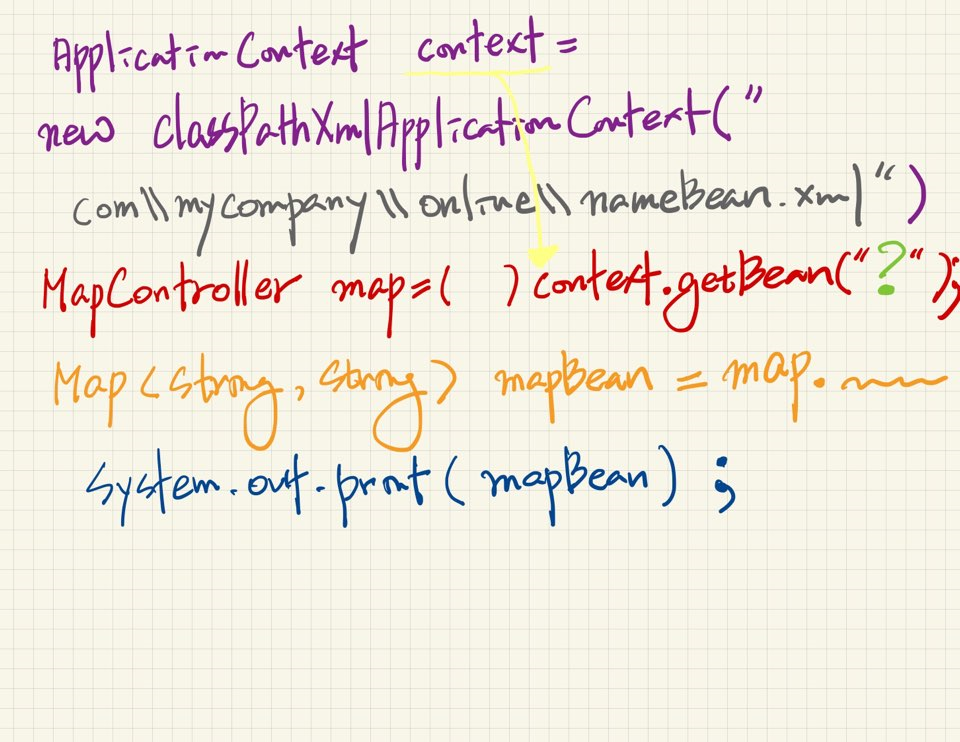 ApplicationContext context =
new classPathXmlApplicationContext("
com\\mycompany\\online\\nameBean.xml")
MapController map=( ) context.getBean("?");
Map<String, String> mapBean = map.
System.out.print(mapBean);